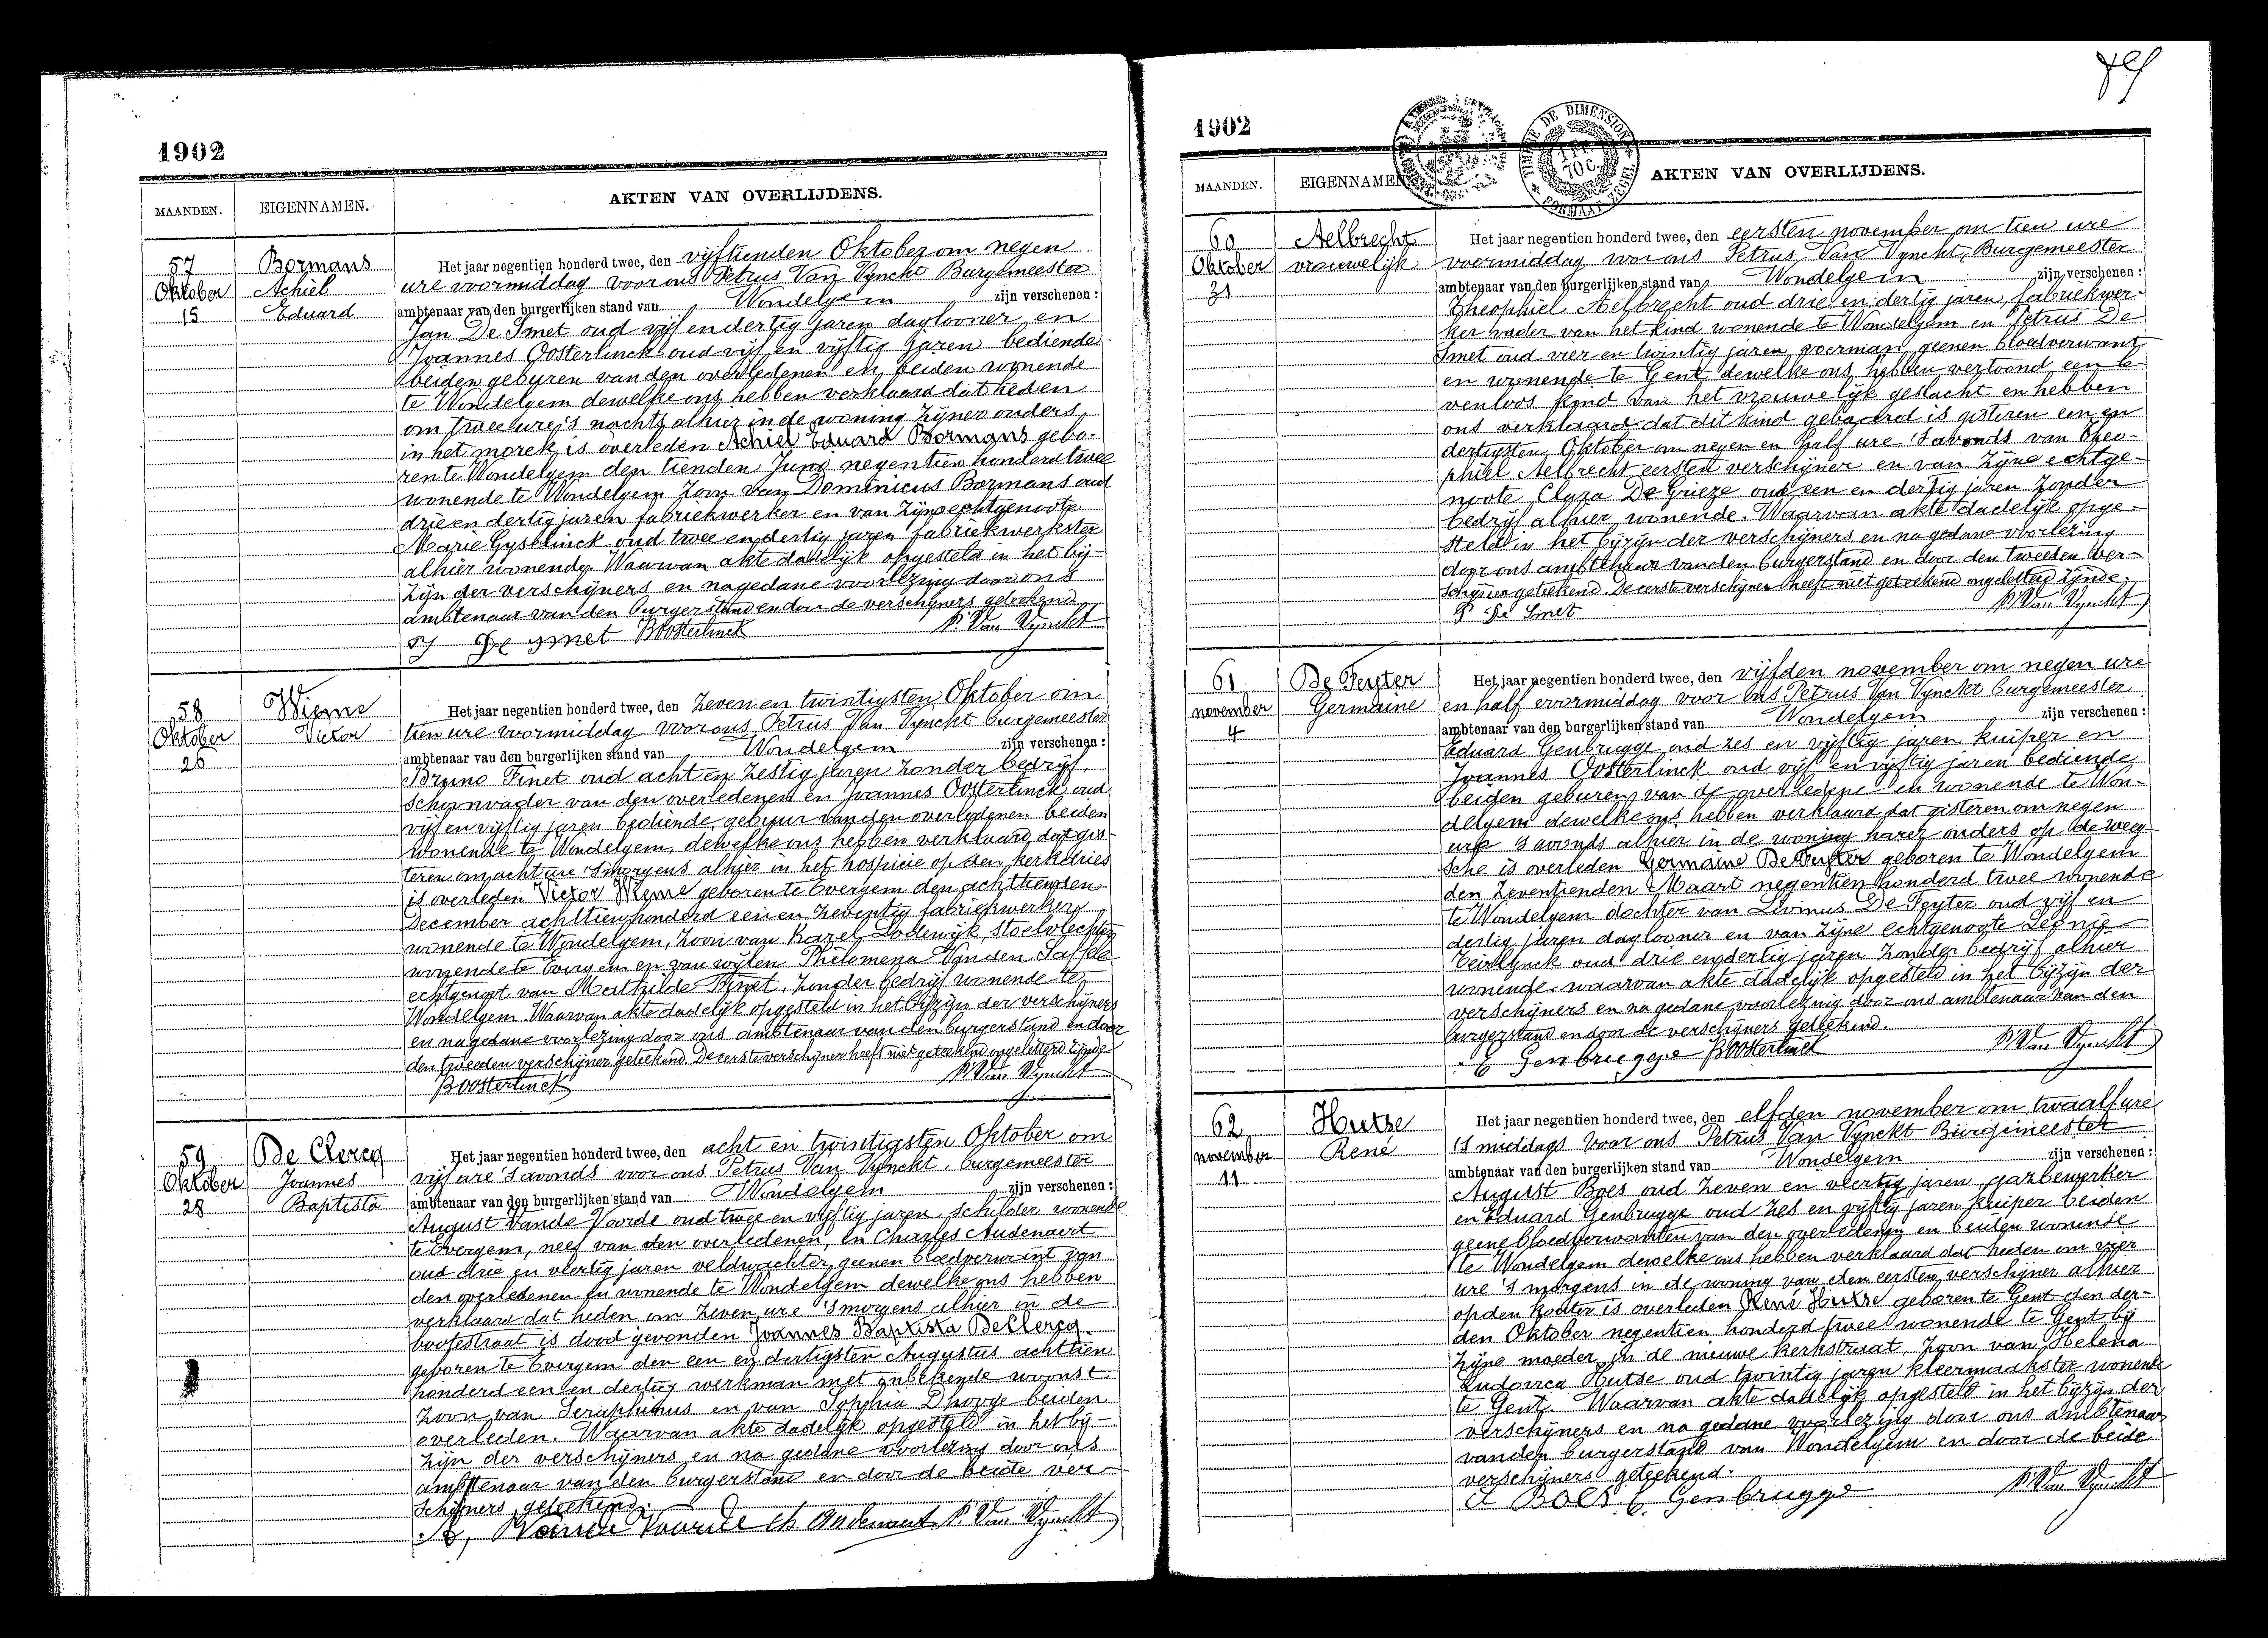 1902
MAANDEN.
EIGENNAMEN.
AKTEN VAN OVERLIJDENS.
57
Oktober
15
Bormans
Achiel
Eduard
Het jaar negentien honderd twee, den vijftienden Oktober om negen
ure voormiddag voor ons Petrus Van Vynckt Burgemeester
ambtenaar van den burgerlijken stand van Wondelgem zijn verschenen:
Jan De Smet oud vijf en dertig jaren daglooner en
Joannes Oosterlinck oud vijf en vijftig jaren bediende
beiden geburen van den overledenen en beiden wonende
te Wondelgem dewelke ons hebben verklaard dat heden
om twee ure 's nachts alhier in de woning zijner ouders
in het morek is overleden Achiel Eduard Bormans gebo-
ren te Wondelgem den tienden Juno negentien honderd twee
wonende te Wondelgem zoon van Dominicus Bormans oud
drie en dertig jaren fabriekwerker en van zijne echtgenoote
Marie Gyselinck oud twee en dertig jaren fabriekwerkster
alhier wonende. Waarvan akte dadelijk opgesteld in het bij-
zijn der verschijners en na gedane voorlezing door ons
ambtenaar van den burgerstand en door de verschijners geteekend
De Smet BOosterlinck P. Van Vynckt
58
Oktober
26
Wieme
Victor
Het jaar negentien honderd twee, den zeven en twintigsten Oktober om
tien ure voormiddag voor ons Petrus Van Vynckt burgemeester
ambtenaar van den burgerlijken stand van Wondelgem zijn verschenen:
Bruno Finet oud acht en zestig jaren zonder bedrijf,
schoonvader van den overledenen en Joannes Oosterlinck oud
vijf en vijftig jaren bediende gebuur van den overledenen beiden
wonende te Wondelgem, dewelke ons hebben verklaard dat gis-
teren om acht ure 's morgens alhier in het hospicie op den kerkdries
is overleden Victor Wieme geboren te Evergem den achttienden
December achttien honderd een en zeventig fabriekwerker
wonende te Wondelgem, zoon van Karel Lodewijk, stoelvlechter
wonende te Evergem en van wijlen Philomena Van den
echtgenoot van Mathilde Finet, zonder bedrijf wonende te
Wondelgem. Waarvan akte dadelijk opgesteld in het bijzijn der verschijners
en na gedane voorlezing door ons ambtenaar van den burgerstand en door
den tweeden verschijner geteekend. De eerste verschijner heeft niet geteekend ongeletterd zijnde
BOosterlinck P. Van Vynckt
59
Oktober
28
De Clercq
Joannes
Baptista
Het jaar negentien honderd twee, den acht en twintigsten Oktober om
vijf ure 's avonds voor ons Petrus Van Vynckt, burgemeester
ambtenaar van den burgerlijken stand van Wondelgem zijn verschenen:
August Vande Voorde oud twee en vijftig jaren schilder wonende
te Evergem, neef van den overledenen, en Charles Audenaert
oud drie en veertig jaren veldwachter geenen bloedverwant van
den overledenen en wonende te Wondelgem dewelke ons hebben
verklaard dat heden om zeven ure 's morgens alhier in de
is dood gevonden Joannes Baptista De Clercq
geboren te Evergem den een en dertigsten Augustus achttien
honderd een en dertig werkman met onbekende woonst
zoon van Seraphinus en van Sophia Dhooge beiden
overleden. Waarvan akte dadelijk opgesteld in het bij-
zijn der verschijners en na gedane voorlezing door ons
ambtenaar van den burgerstand en door de beide ver-
schijners geteekend.
A, Vande Voorde Ch Audenaert P. Van Vynckt
1902
MAANDEN.
EIGENNAMEN.
TIMBRE DE DIMENSION
70c.
AKTEN VAN OVERLIJDENS.
60
Oktober
31
Aelbrecht
vrouwelijk
Het jaar negentien honderd twee, den eersten november om tien ure
voormiddag voor ons Petrus Van Vynckt, Burgemeester
ambtenaar van den burgerlijken stand van Wondelgem zijn verschenen:
Theophiel Aelbrecht oud drie en dertig jaren, fabriekwer-
ker vader van het kind wonende te Wondelgem en Petrus De
Smet oud vier en twintig jaren voerman geenen bloedverwant
en wonende te Gent dewelke ons hebben vertoond een le-
venloos kind van het vrouwelijk geslacht en hebben
ons verklaard dat dit kind gebaard is gisteren een en
dertigsten Oktober om negen en half ure 's avonds van Theo-
phiel Aelbrecht eersten verschijner en van zijne echtge-
noote Clara De Grieze oud een en dertig jaren zonder
bedrijf alhier wonende. Waarvan akte dadelijk opge-
steld in het bijzijn der verschijners en na gedane voorlezing
door ons ambtenaar van den burgerstand en door den tweeden ver-
schijner geteekend. De eerste verschijner heeft niet geteekend ongeletterd zijnde.
P De Smet P. Van Vynckt
61
november
4
De Feyter
Germaine
Het jaar negentien honderd twee, den vijfden november om negen ure
en half voormiddag voor ons Petrus Van Vynckt burgemeester
ambtenaar van den burgerlijken stand van Wondelgem zijn verschenen:
Eduard Genbrugge oud zes en vijftig jaren kuiper en
Joannes Oosterlinck oud vijf en vijftig jaren bediende
beiden geburen van de overledene en wonende te Won-
delgem dewelke ons hebben verklaard dat gisteren om negen
ure 's avonds alhier in de woning harer ouders op de weeg-
sche is overleden Germaine De Feyter geboren te Wondelgem
den zeventienden Maart negentien honderd twee wonende
te Wondelgem dochter van Livinus De Feyter oud vijf en
dertig jaren daglooner en van zijne echtgenoote Leonie
Teirlynck oud drie en dertig jaren zonder bedrijf alhier
wonende. waarvan akte dadelijk opgesteld in het bijzijn der
verschijners en na gedane voorlezing door ons ambtenaar van den
burgerstand en door de verschijners geteekend.
E Genbrugge BOosterlinck P. Van Vynckt
62
november
11
Hutse
René
Het jaar negentien honderd twee, den elfden november om twaalf ure
's middags voor ons Petrus Van Vynckt Burgemeester
ambtenaar van den burgerlijken stand van Wondelgem zijn verschenen:
August Boes oud zeven en veertig jaren, gazbewerker
en Eduard Genbrugge oud zes en vijftig jaren kuiper beiden
geene bloedverwanten van den overledenen en beiden wonende
te Wondelgem dewelke ons hebben verklaard dat heden om vier
ure 's morgens in de woning van den eersten verschijner alhier
op den kouter is overleden René Hutse geboren te Gent den der-
den Oktober negentien honderd twee wonende te Gent bij
zijne moeder in de nieuwe kerkstraat, zoon van Helena
Ludovica Hutse oud twintig jaren kleermaakster wonende
te Gent. Waarvan akte dadelijk opgesteld in het bijzijn der
verschijners en na gedane voorlezing door ons ambtenaar
van den burgerstand van Wondelgem en door de beide
verschijners geteekend.
A Boes E Genbrugge P. Van Vynckt